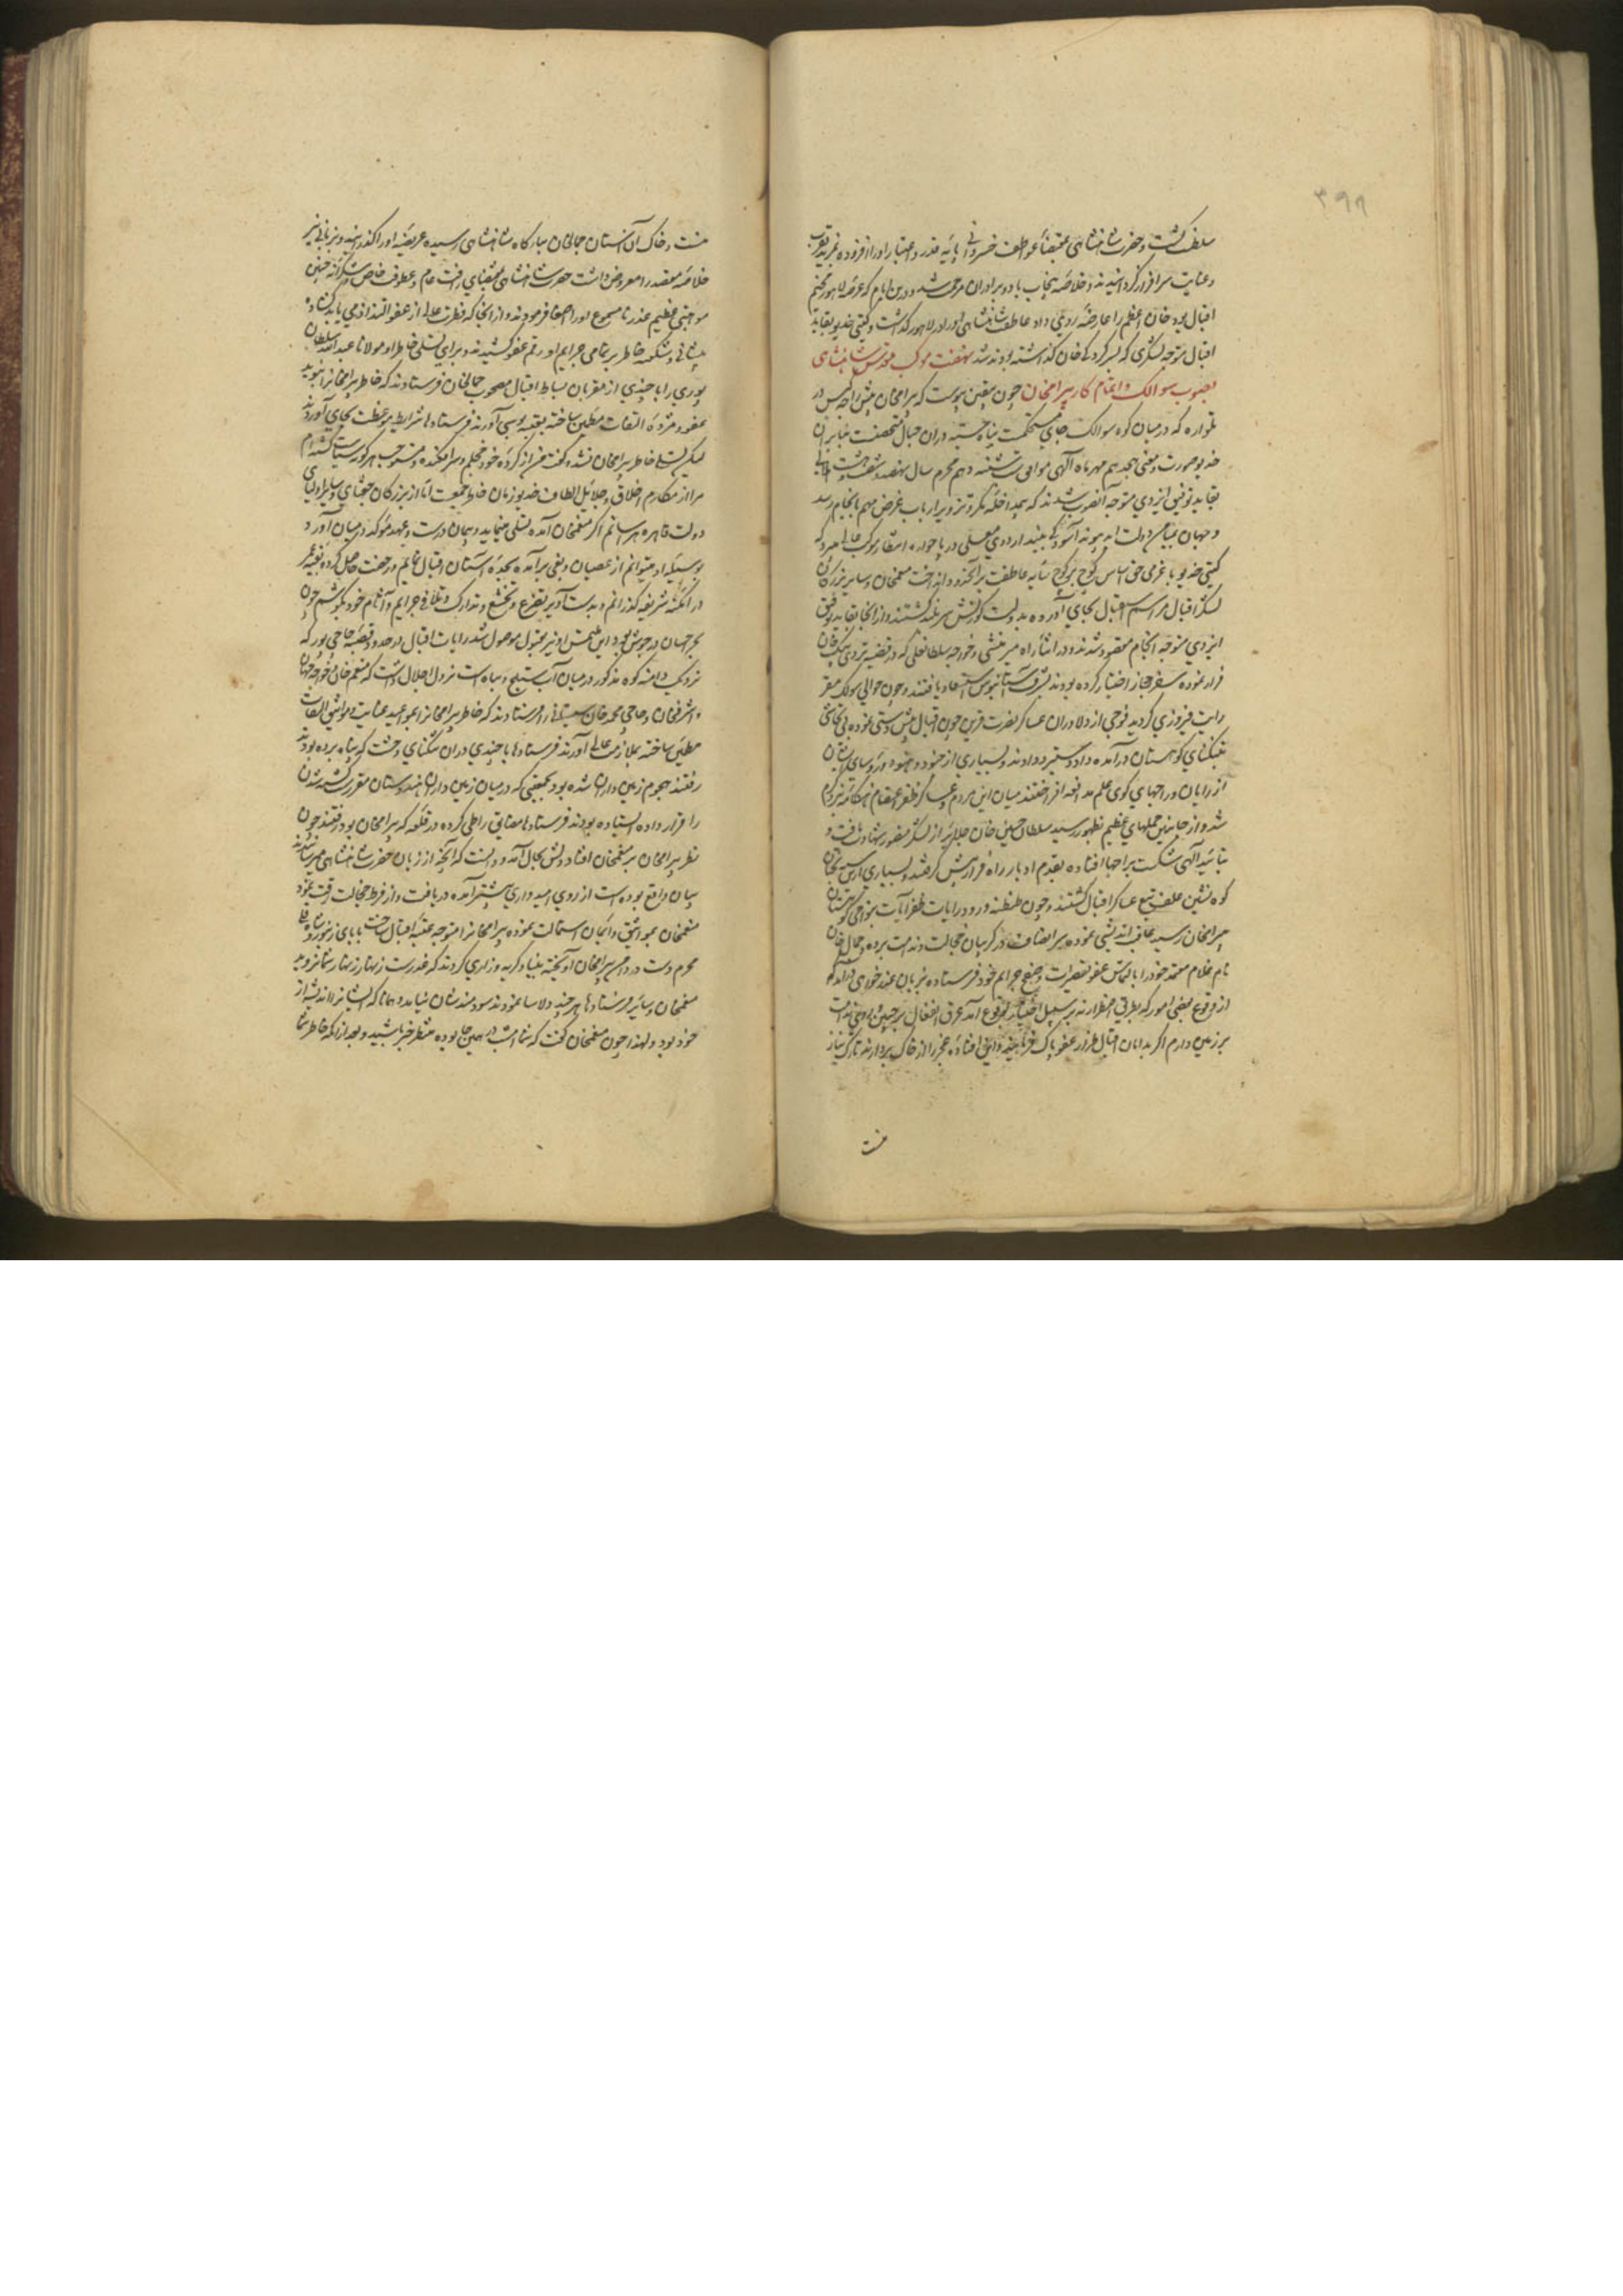 ۳۹۹
سلطنت گشت و حضرت شاهنشاهی بمقتضای عواطف خسروانی پایه قدر و اعتبار او را افزوده بمزید قرب
و عنایت سرافراز گردانیدند و خلاصه پنجاب با و برادران مرحمت شد و درین ایام که عرصه لاهور مخیم
اقبال بود خان اعظم را عارضه روی داد عاطفت شاهنشاهی او را در لاهور گذاشت و گیتی خدیو بقاید
اقبال متوجه لشکری که بسرکردگی خان گذاشته بودند شد نهضت موکب مقدس شاهنشاهی
بصوب سوالک و اتمام کار بیرامخان چون بیقین پیوست که بیرامخان پیش راجه گنیس در
تلواره که در میان کوه سوالک جای مستحکمست پناه جسته در آن جبال متحصنست بنابران
خدیو صورت و معنی هجدهم مهرماه الهی موافق شنبه دهم محرم سال نهصد و شصت و هشت هلالی
بقاید توفیق ایزدی متوجه آنصوب شدند که بمداخله مکر و تزویر ارباب غرض مهم بانجام رسد
و جهان بمیامن دولت ابد پیوند آسودگی بیند اردوی معلی در انتظار موکب عالی میبرد که
گیتی خدیو با عزمی حق اساس کوچ بر کوچ سایه عاطفت بر آنحدود انداخت منعمخان و سایر بزرگان
لشکر اقبال مراسم استقبال بجای آورده بدولت کورنش سربلند گشتند و از آنجا بقاید توفیق
ایزدی متوجه انجام مقصود شدند و در اثنای راه میر منشی و خواجه سلطانعلی که در قضیه تردی بیگ خان
فرار نموده سفر حجاز اختیار کرده بودند بشرف آستانبوس استسعاد یافتند و چون حوالی سوالک مقر
رایت فیروزی گردید فوجی از دلاوران عساکر نصرت قرین چون اقبال پیش دستی نموده بی تحاشی
بتنگنای کوهستان درآمده داد دستبرد دادند و بسیاری از جنود هنود و روسای
از رایان و راجهای کوهی علم مدافعه افراختند میان این مردم و عساکر ظفر اعتصام هنگامه نبرد گرم
شد و از جانبین حملهای عظیم بظهور رسید سلطان حسین خان جلایر از لشکر منصور شهادت یافت و
بتایید الهی شکست بر راجها افتاده بقدم ادبار راه فرار پیش گرفتند و بسیاری
کوه نشین علف تیغ عساکر اقبال گشتند و چون طنطنه ورود رایات ظفر آیات بنواحی کوهستان
ببیرامخان رسید عاقبت اندیشی نموده سر انصاف در گریبان خجالت و ندامت برده و جمال خان
نام غلام معتمد خود را بالتماس عفو تقصیرات و صفح جرایم خود فرستاده بزبان عذرخواهی
از وقوع بعضی امور که بطریق اضطرار نه بر سبیل اختیار بوقوع آمد عرق انفعال بر جبین و روی ندامت
بر زمین دارم اگر بدامان اقبال طراز عفو پاک فرمایند و این افتاده عجز را از خاک بردارند تارک نیاز
منست
منست و خاک آن آستان جمالخان ببارگاه شاهنشاهی رسیده عریضه او را گذرانید و بزبانی نیز
خلاصه مقصد را معروض داشت حضرت شاهنشاهی بمقتضای رافت عام و عطوفت خاص بشکرانه چنین
موهبتی عظیم عذر نامسموع او را اصغا فرمودند و از آنجا که فطرت عالی از عفو التذاذ می یابد بگشاده
پیشانی و شکفته خاطر بر تمامی جرایم او رقم عفو کشیدند و برای تسلی خاطر او مولانا عبدالله سلطان
پوری را با چندی از مقربان بساط اقبال مصحوب جمالخان فرستادند که خاطر بیرامخان را بنوید
عفو و مژده التفات مطمین ساخته بعتبه بوسی آورند فرستادها شرایط موعظت بجای آوردند
لیکن تسلی خاطر بیرامخان نشد و گفت من از کرده خود خجلم و سرافکنده و مستوجب هرگونه سیاست گشته ام
مرا از مکارم اخلاق و جلایل الطاف خدیو زمان خاطر جمعیست اما از بزرگان جغتای و سایر اولیای
دولت قاهره هراسانم اگر منعمخان آمده تسلی نماید و پیمان درست و عهد موکد در میان آورد
بوسیله او میتوانم از عصیان و بغی برآمده بسجده آستان اقبال شتابم و رخصت حاصل کرده بقیه عمر
در امکنه شریفه گذرانم و بدست آویز تضرع و تخشع و تدارک و تلافی جرایم و آثام خود بکوشم چون
بحر احسان در جوش بود این ملتمس او نیز بقبول موصول شد رایات اقبال در حدود قصبه حاجی پور که
نزدیک دامنه کوه مذکور در میان آب ستلج و بیاه است نزول اجلال داشت که منعم خان و خواجه جهان
و اشرفخان و حاجی محمد خان سیستانی را فرستادند که خاطر بیرامخان را بمواعید عنایت و مواثیق التفات
مطمین ساخته بملازمت عالی آورند فرستادها با چندی در آن تنگنای وحشت که پناه برده بودند
رفتند هجوم زمین داران شده بود بجمعیتی که در میان زمین داران هندوستان مقررست کشته شدن
را قرار داده ایستاده بودند فرستادها مضایق را طی کرده در قلعه که بیرامخان بود رفتند چون
نظر بیرامخان بر منعمخان افتاد دلش بحال آمد و دانست که آنچه از زبان حضرت شاهنشاهی میرسانیدند
بیان واقع بوده است از روی امیدواری پیشتر آمده دریافت و از فرط خجالت رقت نمود
منعمخان بمواثیق و ایمان استمالت نموده بیرامخان را متوجه عتبه اقبال ساخت بابای زنبور و شاه قلی
محرم دست در دامن بیرامخان آویخته بنیاد گریه و زاری کردند که غدرست زنهار زنهار شما نروید
منعمخان و سایر فرستادها هر چند دلاسا نمودند سودمند شان نیامد و همانا که ایشان را اندیشه از
خود بود و لهذا چون منعمخان گفت که شما امشب همین جا بوده منتظر خبر باشید و بعد از آنکه خاطر شما